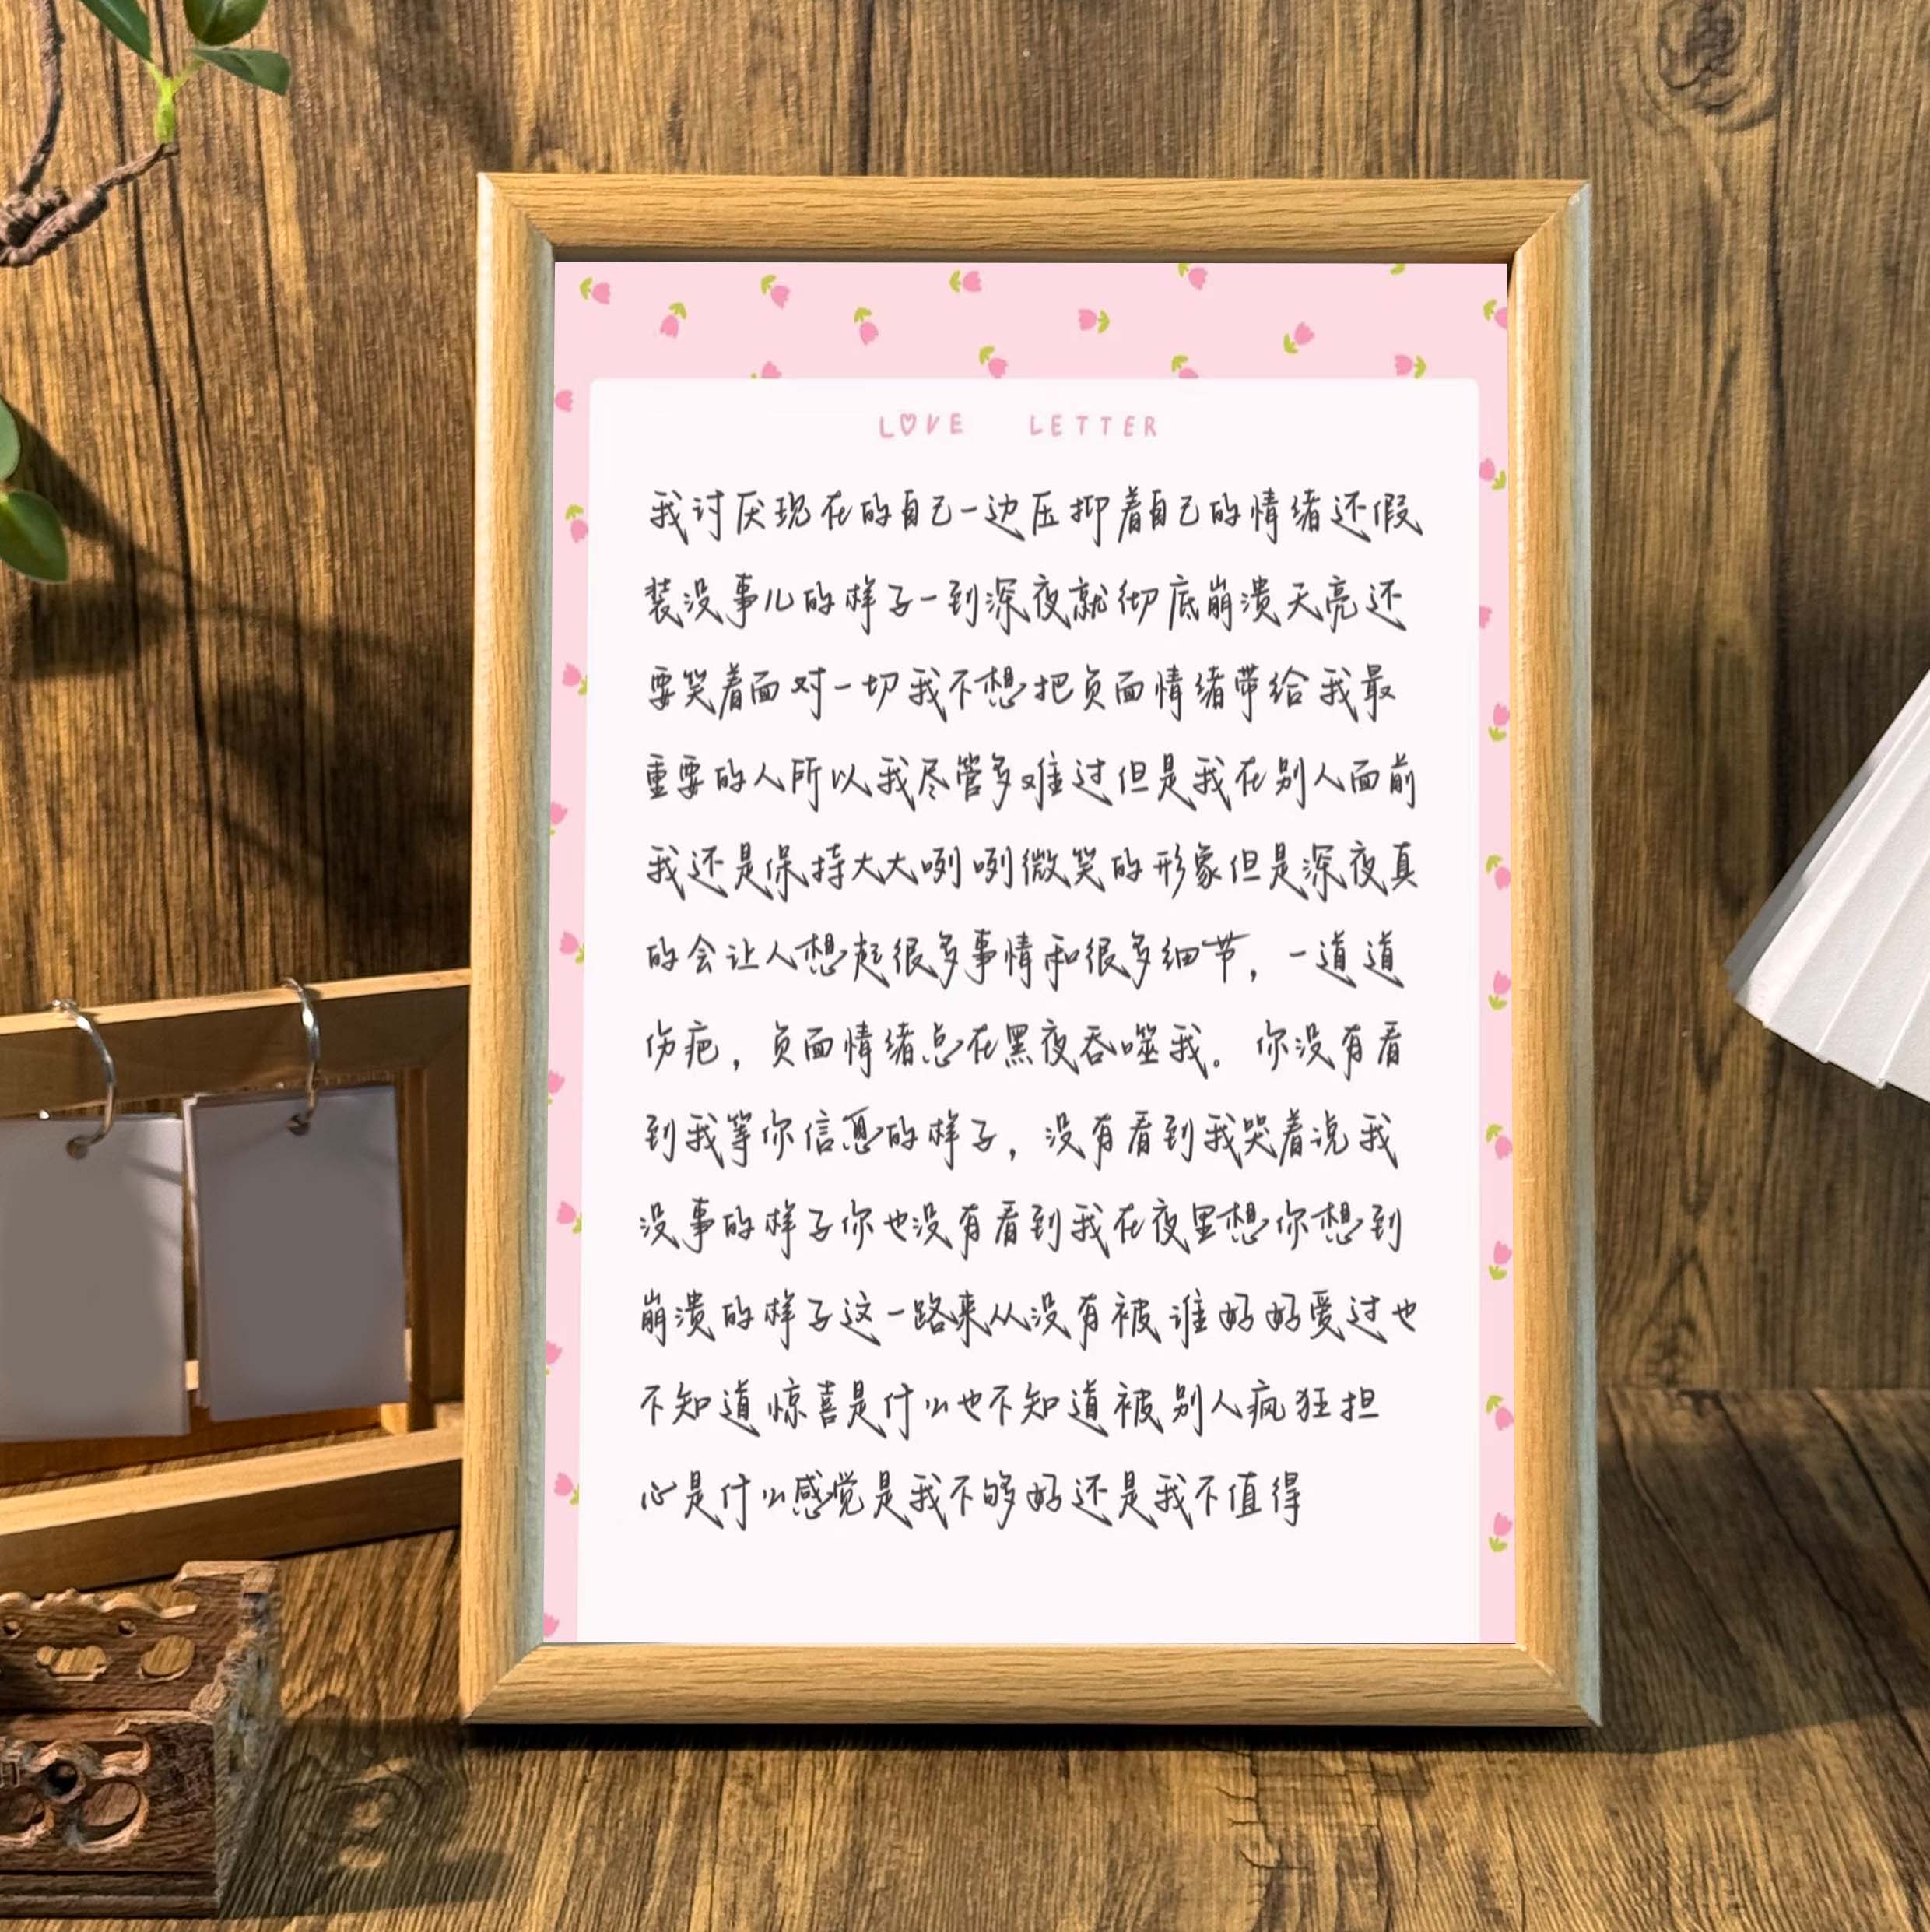 LOVE LETTER
我讨厌现在的自己一边压抑着自己的情绪还假
装没事儿的样子一到深夜就彻底崩溃天亮还
要笑着面对一切我不想把负面情绪带给我最
重要的人所以我尽管多难过但是我在别人面前
我还是保持大大咧咧微笑的形象但是深夜真
的会让人想起很多事情和很多细节，一道道
伤疤，负面情绪总在黑夜吞噬我。你没有看
到我等你信息的样子，没有看到我哭着说我
没事的样子你也没有看到我在夜里想你想到
崩溃的样子这一路来从没有被谁好好爱过也
不知道惊喜是什么也不知道被别人疯狂担
心是什么感觉是我不够好还是我不值得